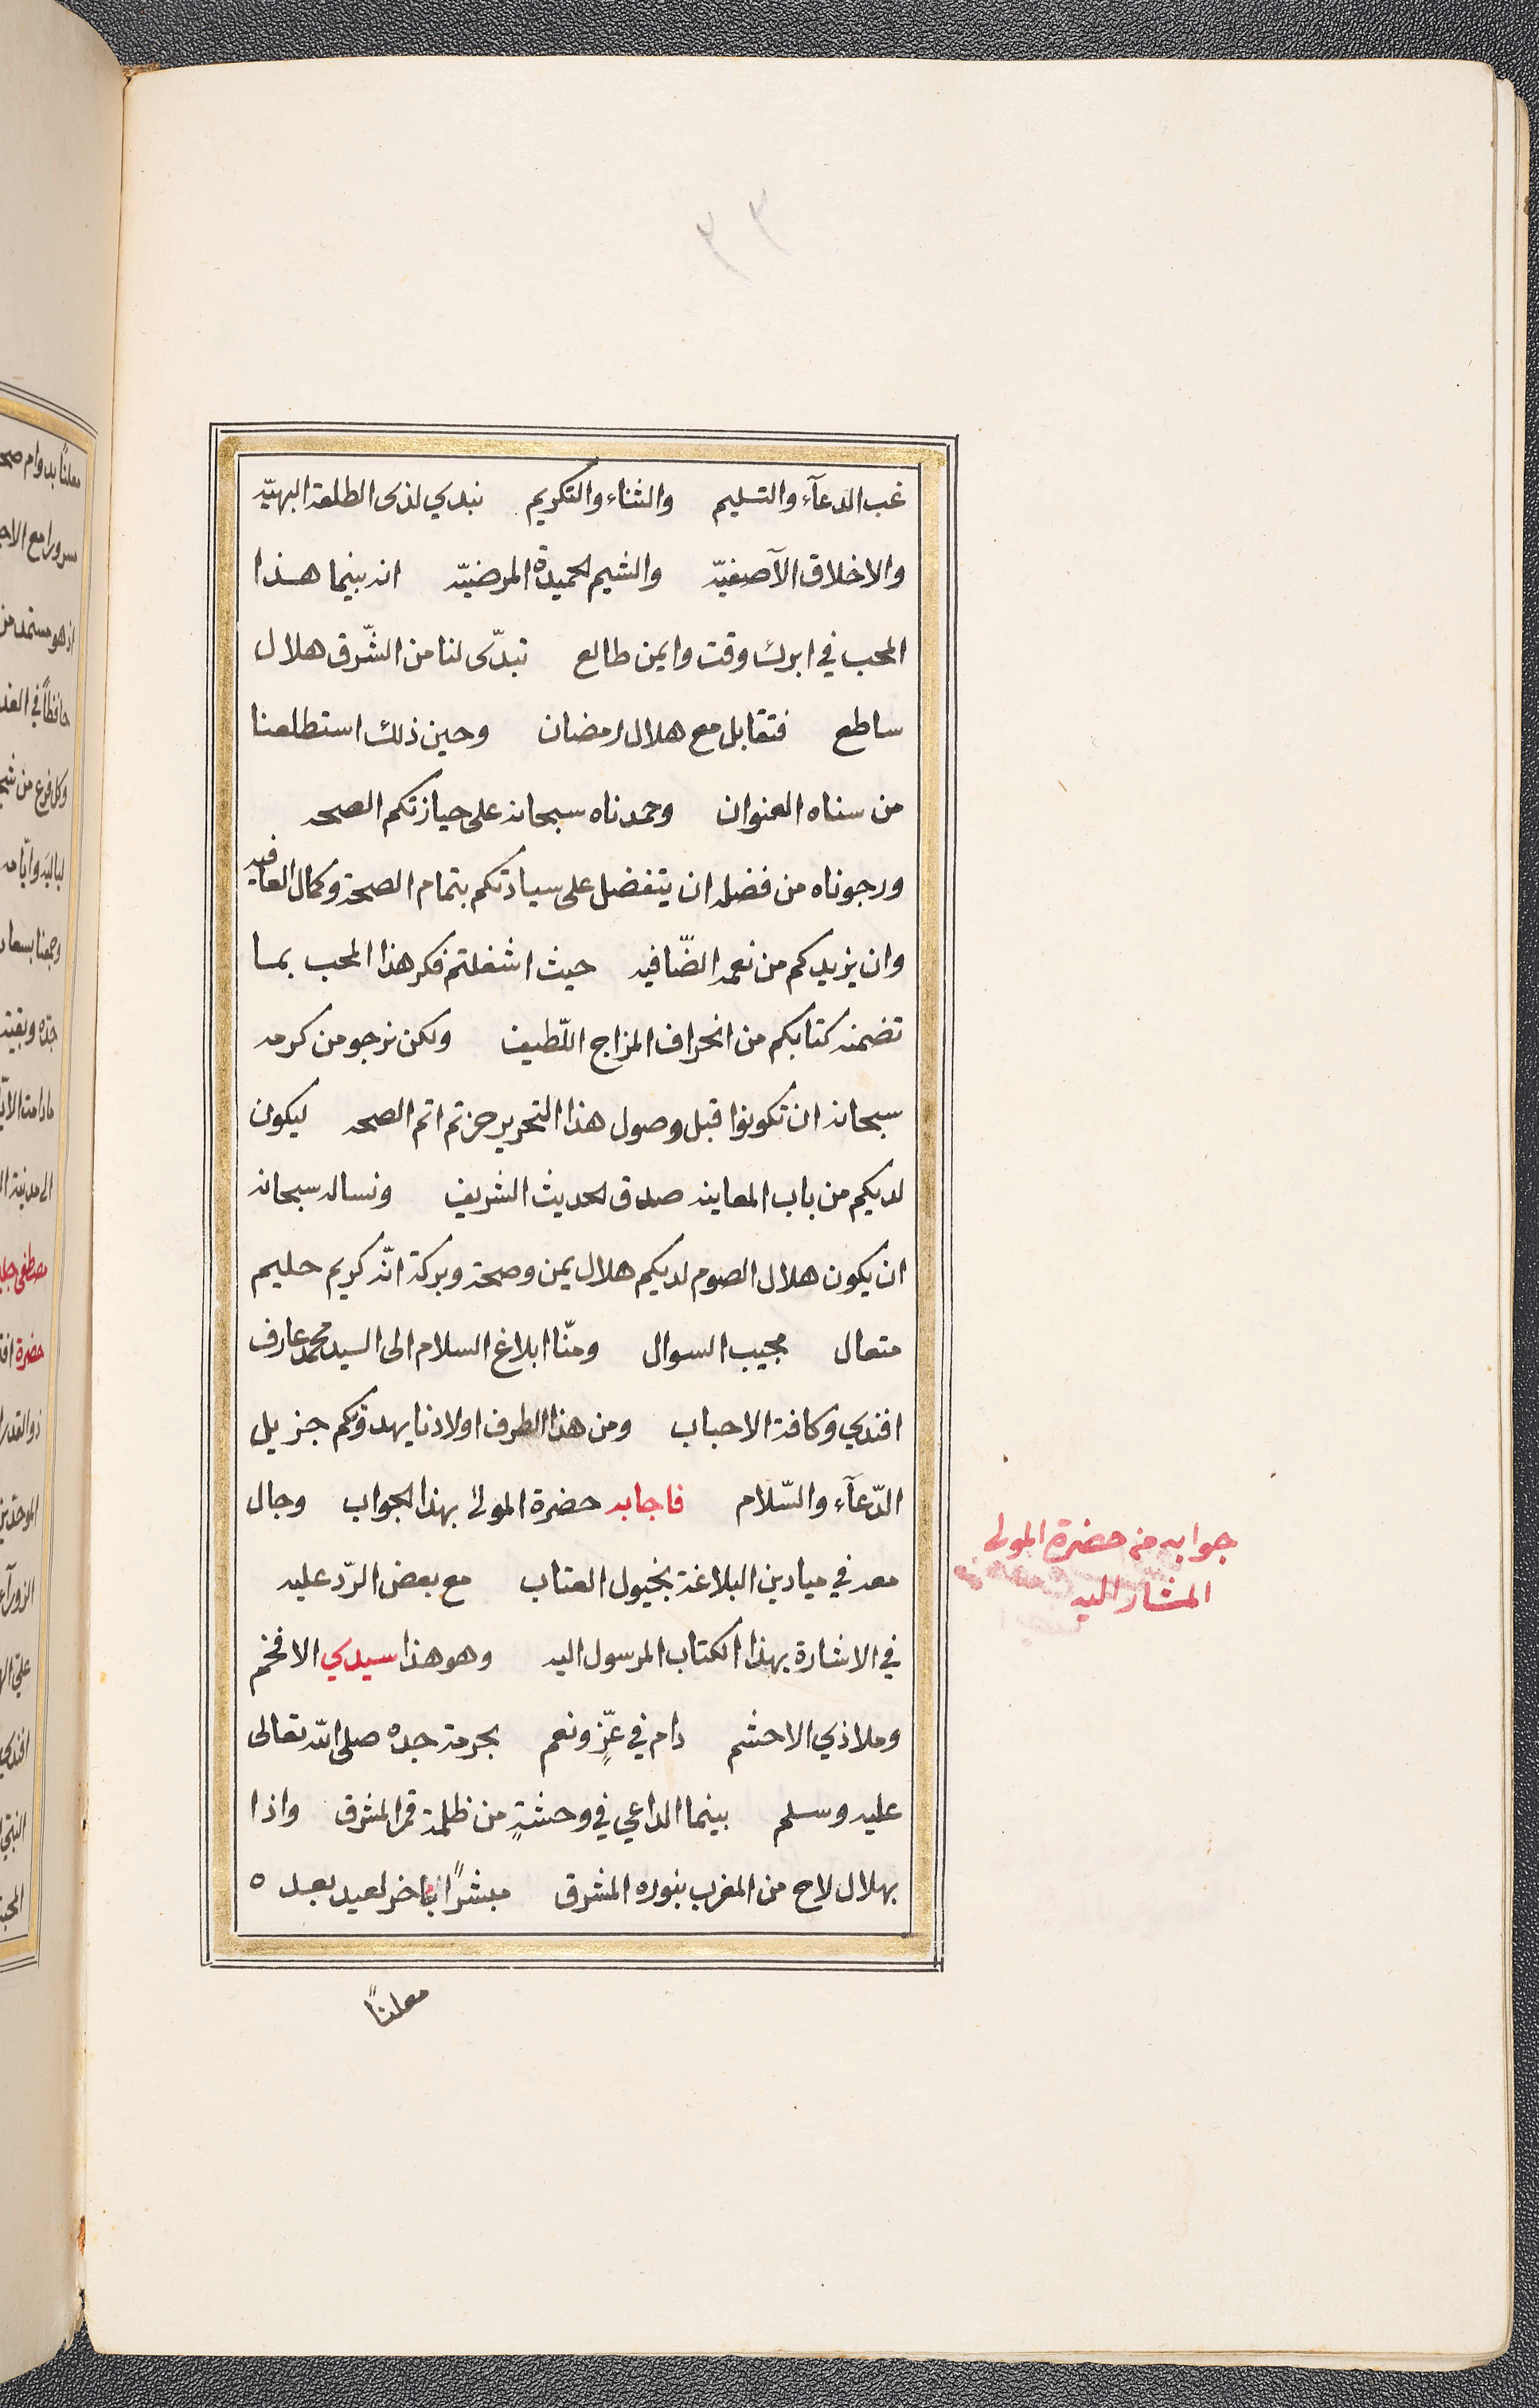 ٣٣
غب الدعآء والتسليم والثناء والتكريم نبدي لذى الطلعة البهيّه
والاخلاق الآصفيّه والشيم الحميدة المرضيّه انه بينما هذا
المحب في ابرك وقت وايمن طالع تبدّى لنا من الشّرق هلال
ساطع فتقابل مع هلال رمضان وحين ذلك استطلعنا
من سناه العنوان وحمدناه سبحانه على حيازتكم الصحه
ورجوناه من فضله ان يتفضل على سيادتكم بتمام الصحة وكمال العافيه
وان يزيدكم من نعمه الضّافيه حيث اشغلتم فكر هذا المحب بما
تضمنه كتابكم من انحراف المزاج اللّطيف ولكن نرجو من كرمه
سبحانه ان تكونوا قبل وصول هذا التحرير حزتم اتم الصحه ليكون
لديكم من باب المعاينه صدق الحديث الشريف ونساله سبحانه
ان يكون هلال الصوم لديكم هلال يمن وصحة وبركة انّه كريم حليم
متعال مجيب السوال ومنّا ابلاغ السلام الى السيد محمد عارف
افندي وكافة الاحباب ومن هذا الطرف اولادنا يهدونكم جزيل
الدّعآء والسّلام فاجابه حضرة المولى بهذا الجواب وجال
معه في ميادين البلاغة بخيول العتاب مع بعض الرّد عليه
في الاشارة بهذا الكتاب المرسول اليه وهو هذا سيدي الافخم
وملاذي الاحشم دام في عزٍّ ونعم بحرمة جده صلى الله تعالى
عليه وسلم بينما الداعي في وحشةٍ من ظلمة قمر المشرق واذا
بهلال لاح من المغرب بنوره المشرق مبشرًا باخر لعيد بعده
معلنًا
جوابه من حضرة المولى
المشار اليه